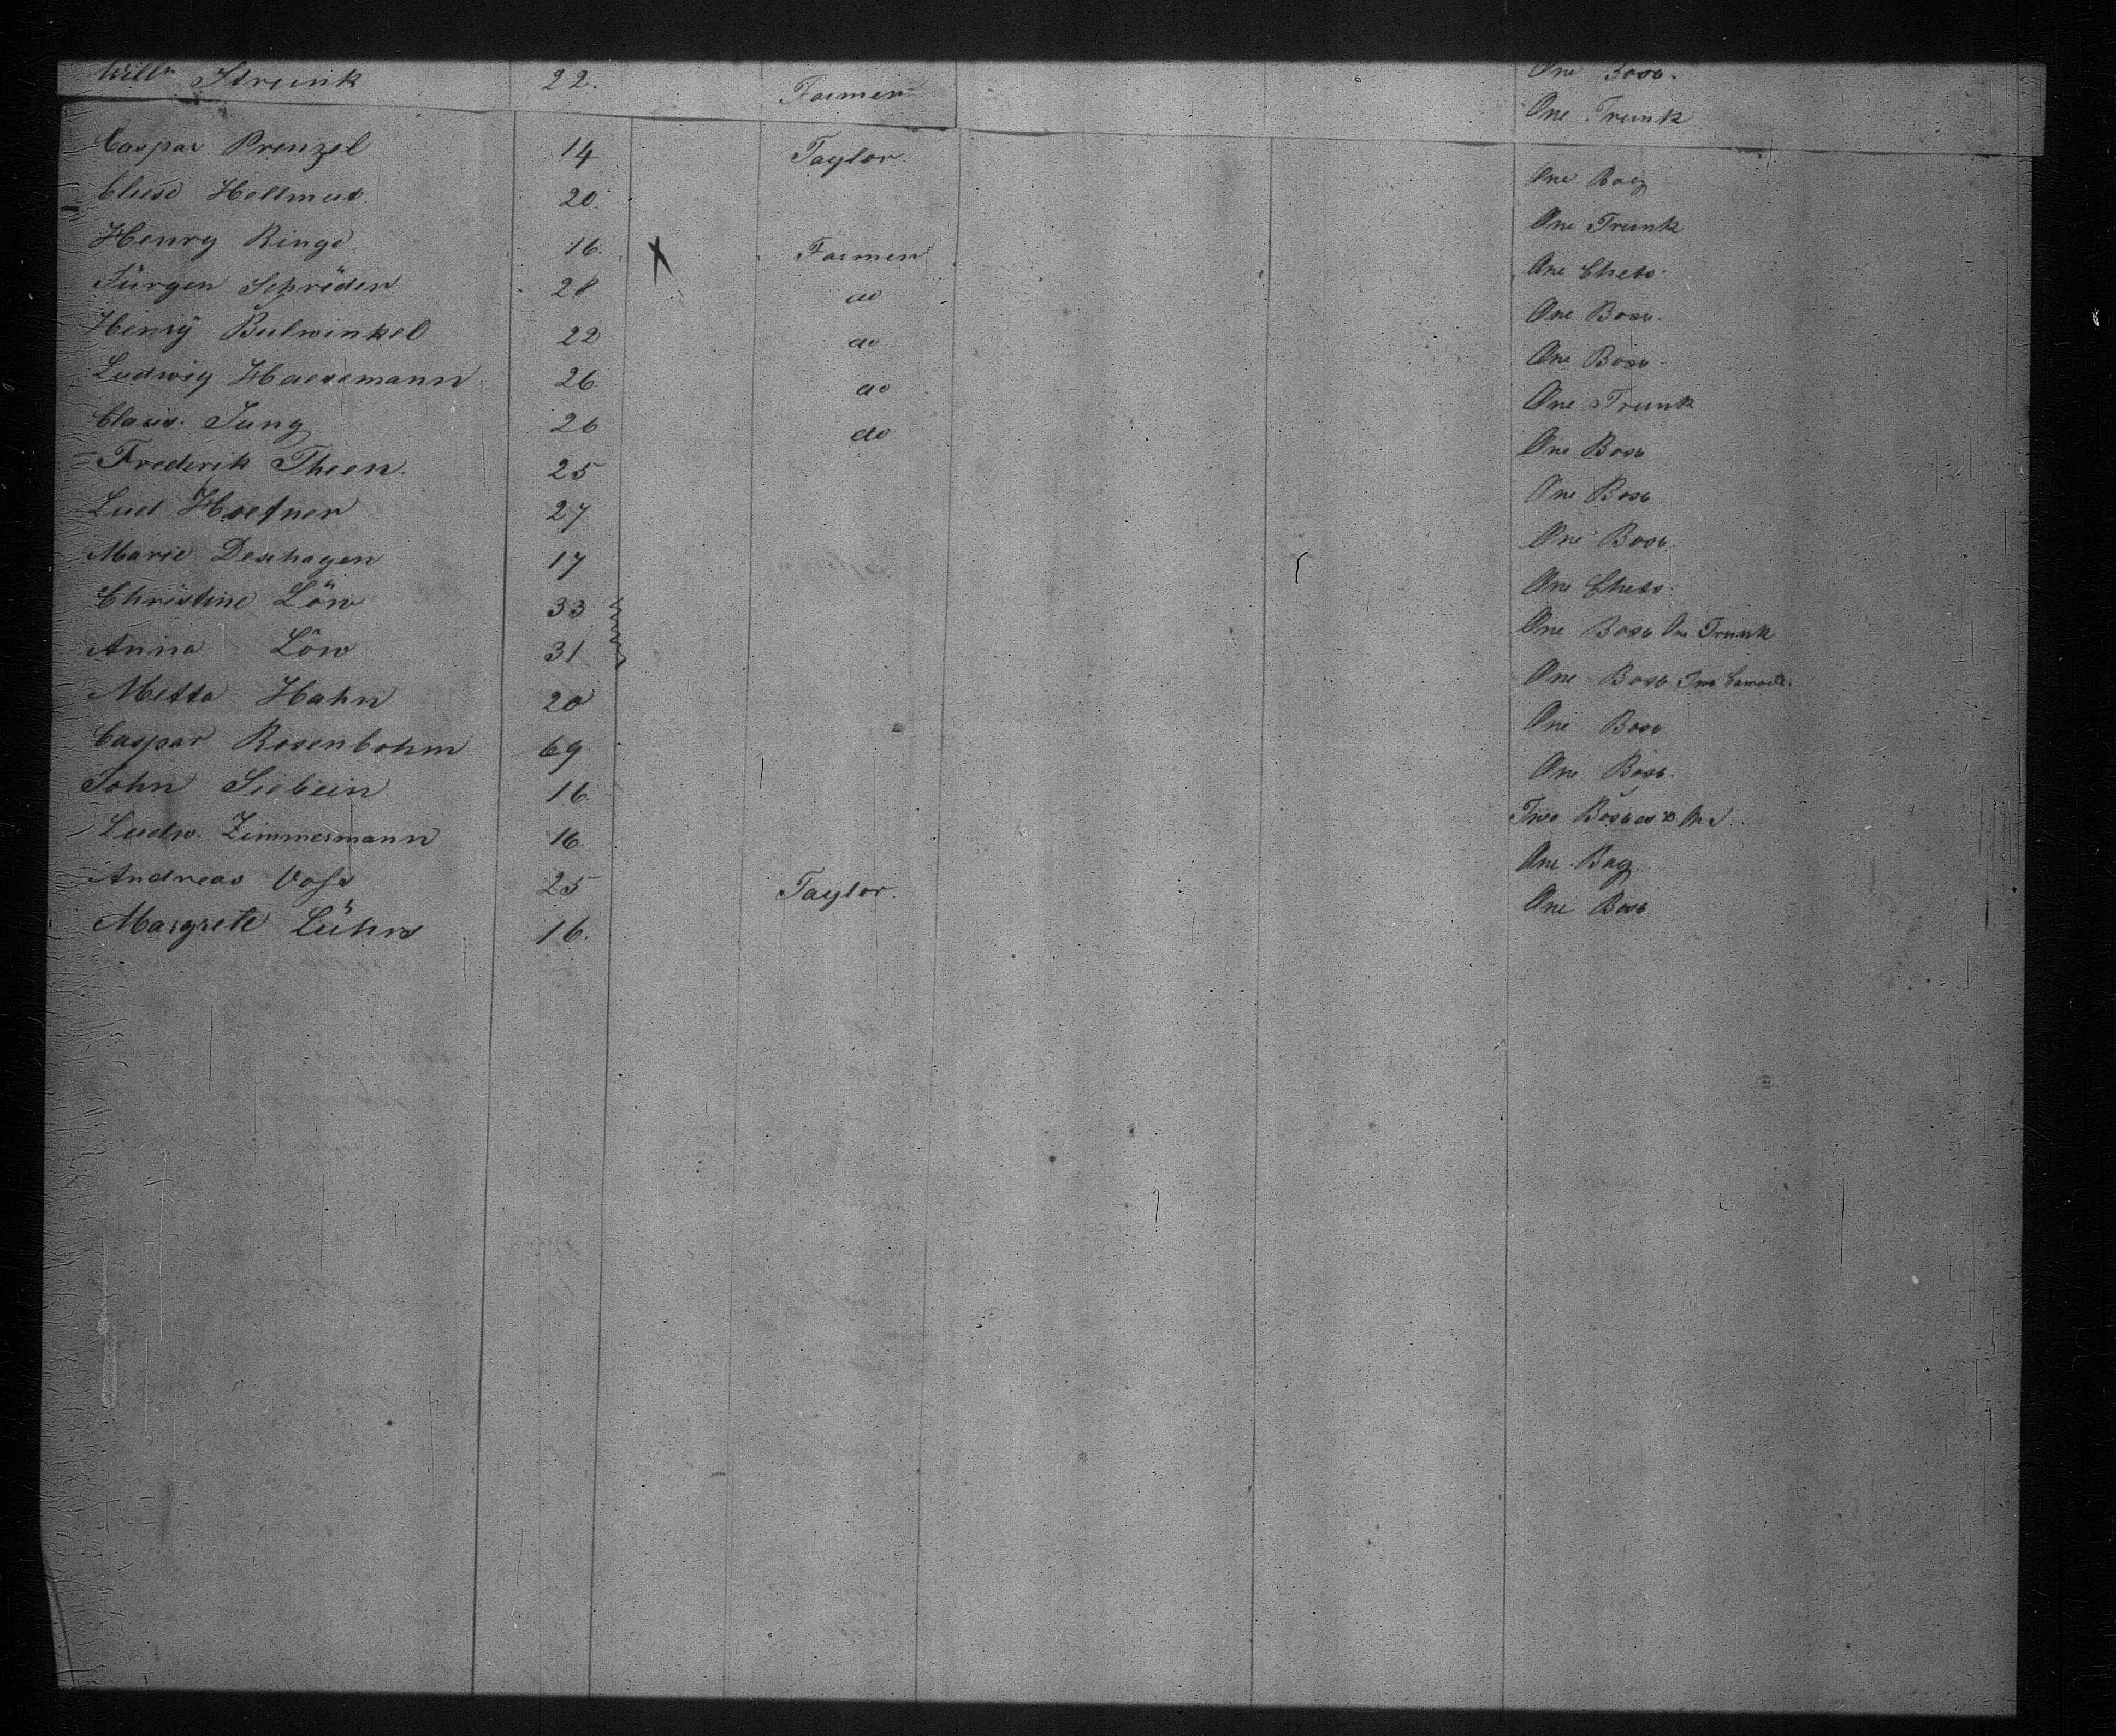 Willm Strunk 22. Farmer One Box.
Caspar Prenzel 14 Taylor. One Trunk
Eluse Hellmus 20. One Bag
Henry Ringe. 16. X Farmer One Trunk
Jürgen Schröder 28 do One Chets.
Henry Bulwinkel 22 do One Box.
Ludwig Haesemann 26. do One Box.
Claus. Jung 26 do One Trunk
Frederik Theen. 25 One Box
Lud Hoefner 27 One Box
Marie Deshagen 17 One Box.
Christine Löw 33 One Chets.
Anna Löw 31 One Box One Trunk
Metta Hahn 20 One Box Two
Caspar Rosenbohm 69 One Box
John Siebein 16. One Box.
Ludw. Zimmermann 16 Two Boxes
Andreas Voss 25 Taylor. One Bag.
Margrete Lührs 16. One Box